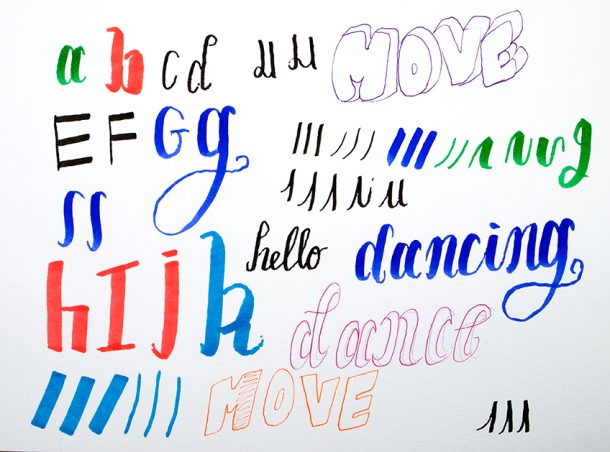 a b c d MOVE
E F G g
hello dancing
h I j k
dance
MOVE